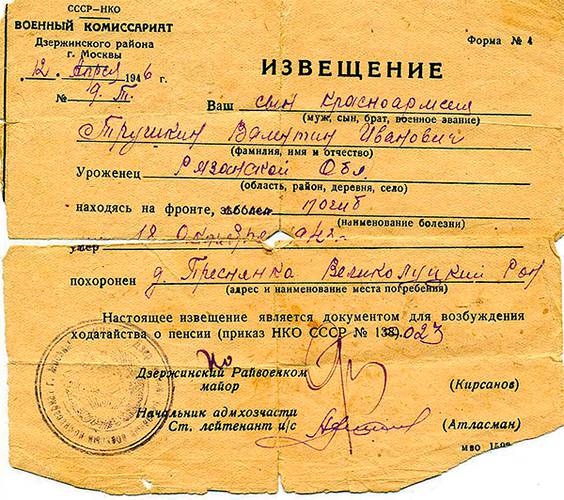 СССР–НКО
ВОЕННЫЙ КОМИССАРИАТ
Дзержинского района
г. Москвы
12 Апреля 1946 г.
№ 9. Т.
Форма № 4
ИЗВЕЩЕНИЕ
Ваш сын красноармеец
(муж, сын, брат, военное звание)
Трушкин Валентин Иванович
(фамилия, имя и отчество)
Уроженец Рязанской Обл.
(область, район, деревня, село)
находясь на фронте, заболел погиб
(наименование болезни)
умер 18 Октября 942г.
похоронен д. Преснянка Великолуцкий Рон
(адрес и наименование места погребения)
Настоящее извещение является документом для возбуждения
ходатайства о пенсии (приказ НКО СССР № 138). 023
по
Дзержинский Райвоенком
майор (Кирсанов)
Начальник адмхозчасти
Ст. лейтенант и/с (Атласман)
мво